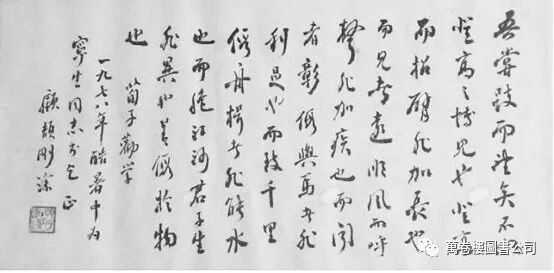 吾嘗跂而望矣不如
登高之博見也登高
而招臂非加長也
而見者遠順風而呼
聲非加疾也而聞
者彰假輿馬者非
利足也而致千里
假舟楫者非能水
也而絕江河君子生
非異也善假於物
也
荀子勸學
一九七八年酷暑中為
寧生同志書乞正
顧頡剛塗
萬卷樓圖書公司